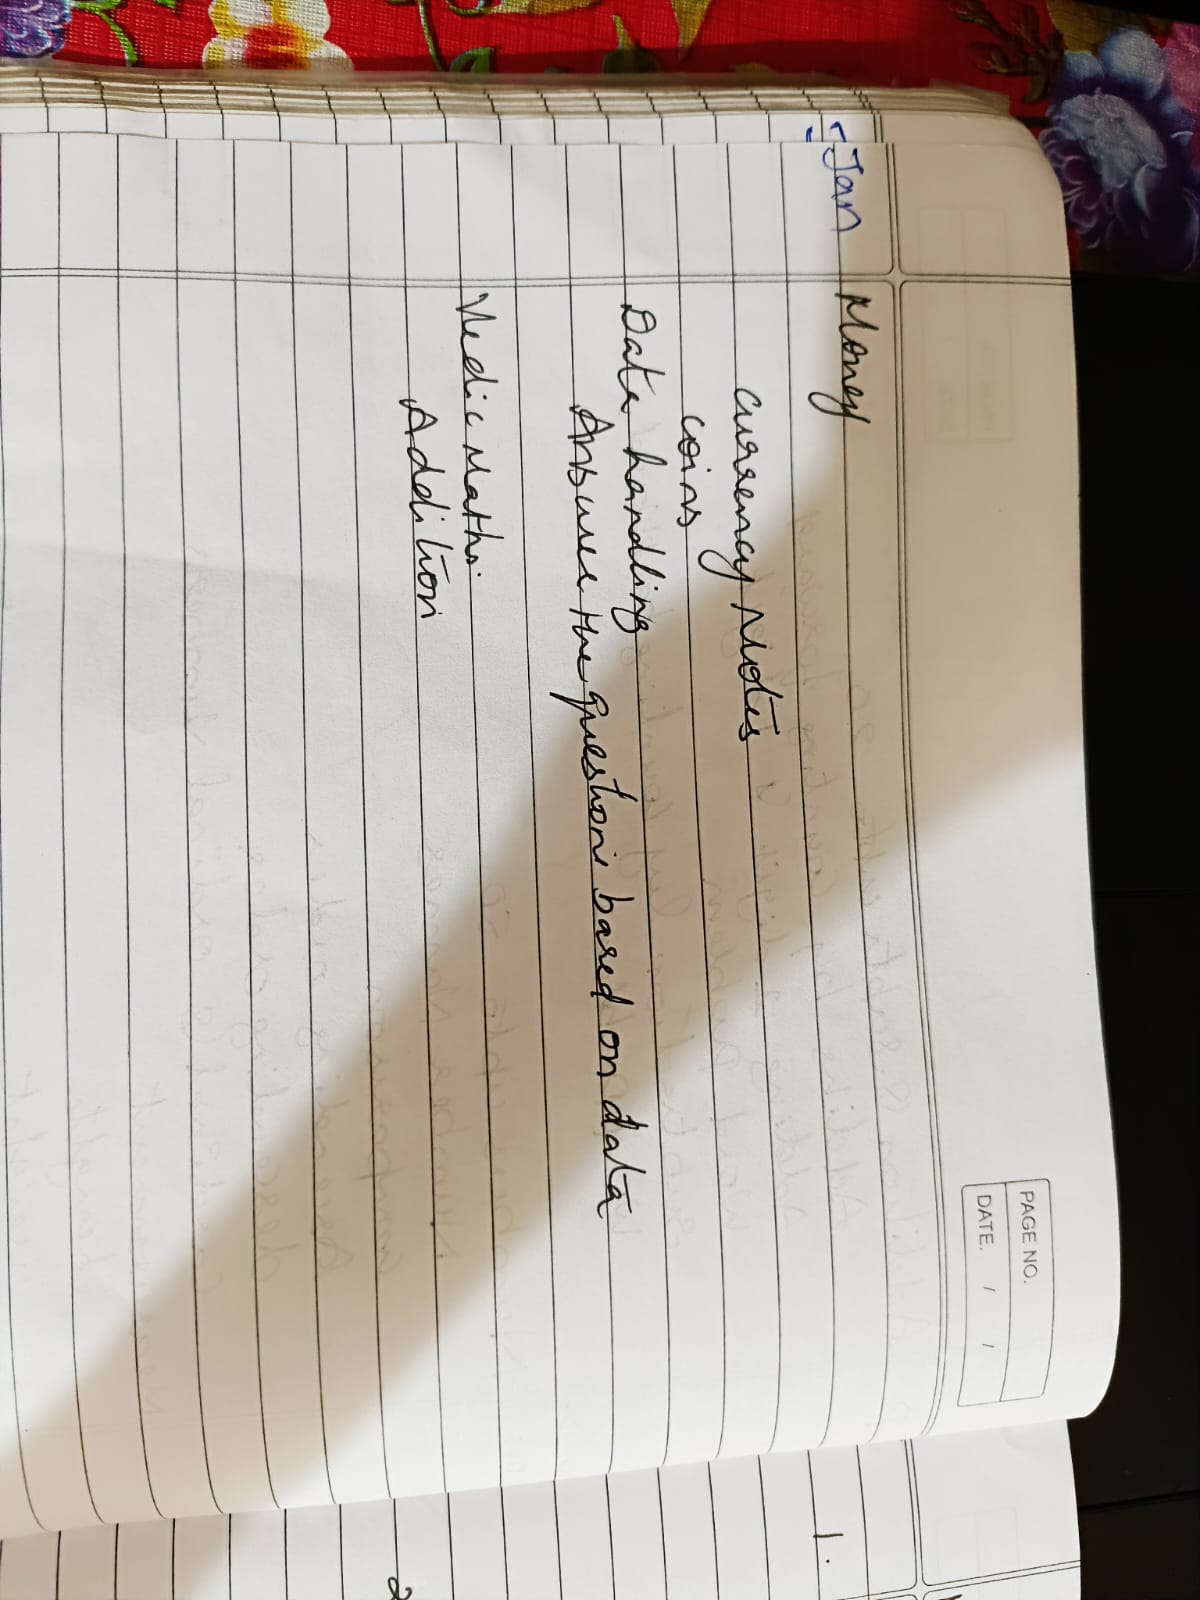 PAGE NO.
DATE. / /
Jan Money
Currency Notes
coins
Data handling
Answer the questions based on data
Vedic Maths
Addition
1.
2